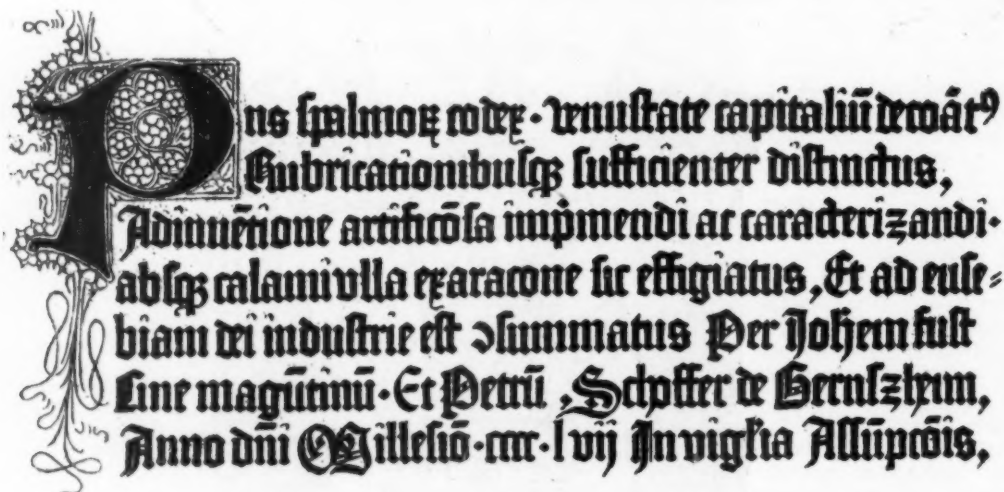 Pns spalmoꝝ codex · venustate capitaliū decoātꝰ
Rubricationibusqꝫ sufficienter distinctus,
Adinuētione artificōsa imp̄mendi ac caracterizandi ·
absqꝫ calami vlla exaracone sic effigiatus, Et ad euse⸗
biam dei industrie est ꝯsummatus Per Johem fust
Ciue magūtinū · Et Petrū Schoffer de Gernszheim,
Anno dn̄i Millesiō · cccc · lvij In vigĺia Assūpcōis,